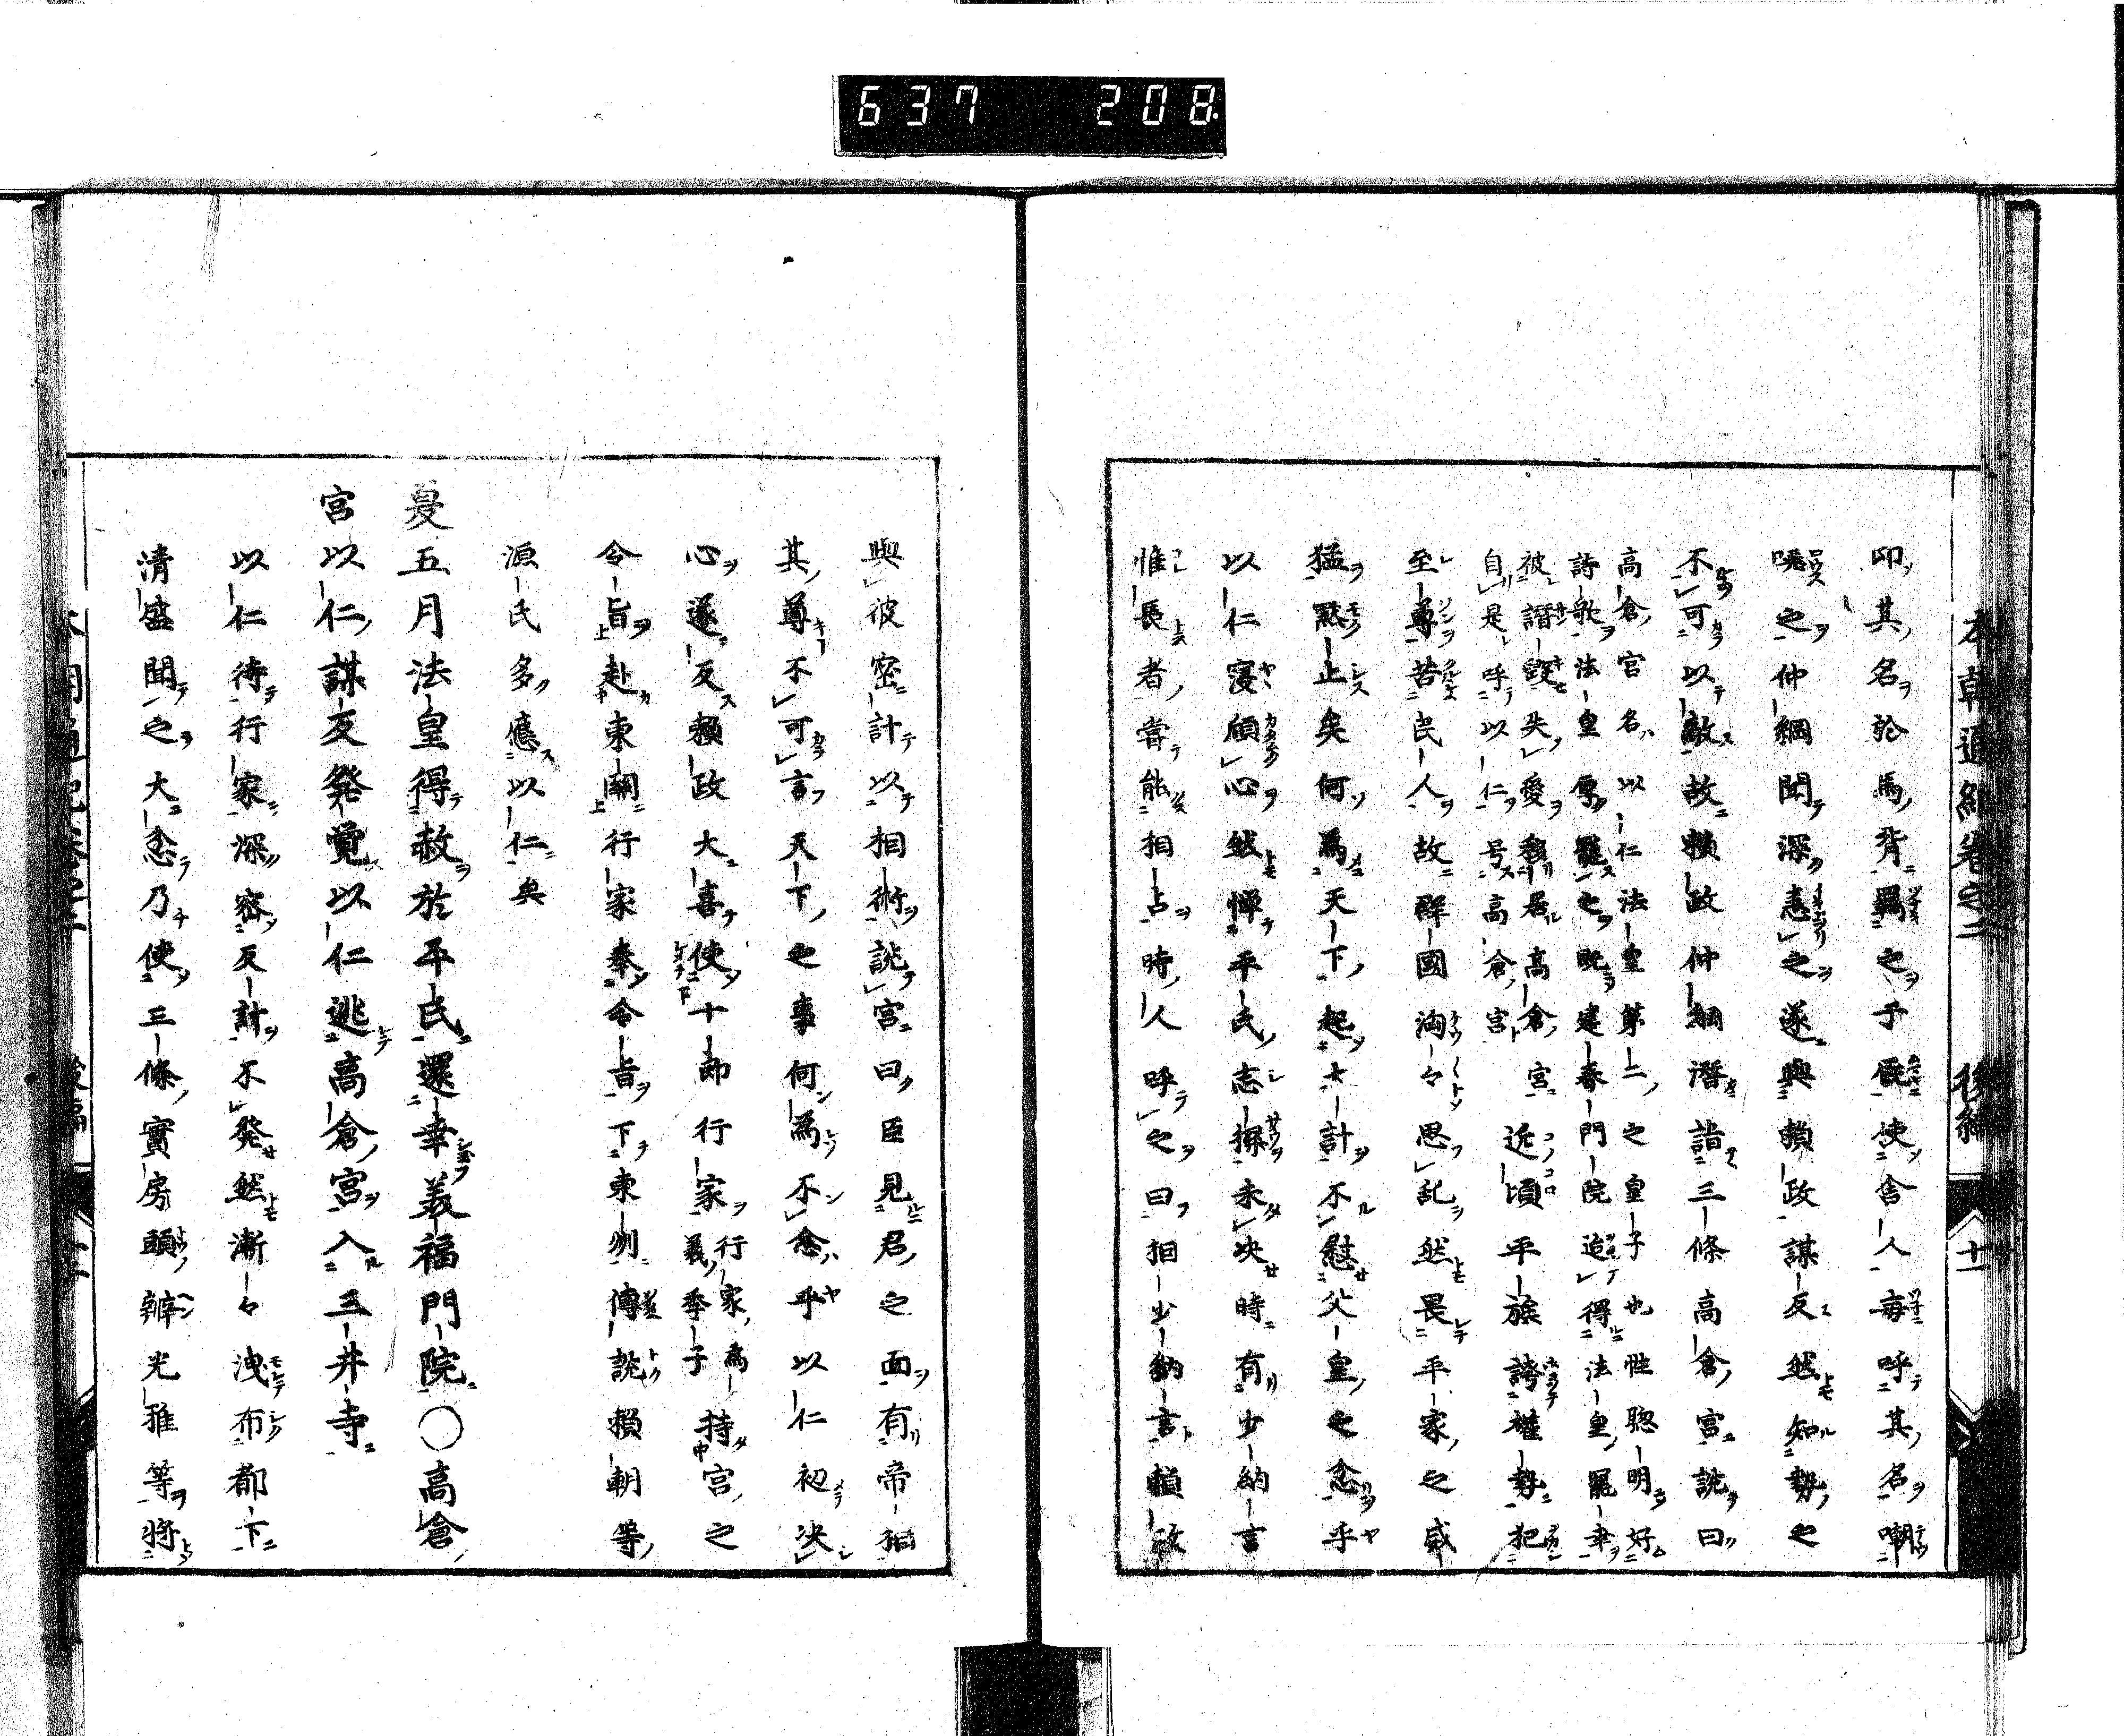 637 208
本朝通紀卷之二 後編 十一
印其名於馬背羈之于厩使舍人毎呼其名嘲
哂之仲綱聞深恚之遂與頼政謀反然知勢之
不可以敵故頼政仲綱潜詣三條高倉宮説曰
高倉宮名以仁法皇第二之皇子也性聰明好
詩歌法皇厚寵之既建春門院追得法皇寵幸
被譖毀失愛務居高倉宮
自是呼以仁号高倉宮
近頃平族誇權勢犯
至尊苦民人故群國洶々思乱然畏平家之威
猛黙止矣何為天下起大計不慰父皇之忿乎
以仁寝願心然憚平氏志操未决時有少納言
惟長者嘗能相占時人呼之曰相少納言頼政
與彼密計以相術説宮曰臣見君之面有帝相
其尊不可言天下之事何為不念乎以仁初决
心遂反頼政大喜使十郎行家
行家為
義季子
持宮之
令旨赴東關行家奉令旨下東州傳説頼朝等
源氏多應以仁矣
夏五月法皇得赦於平氏還幸美福門院〇高倉
宮以仁謀反発覚以仁逃高倉宮入三井寺
以仁待行家深密反計不発然漸々洩布都下
清盛聞之大忿乃使三條實房頭辨光雅等将